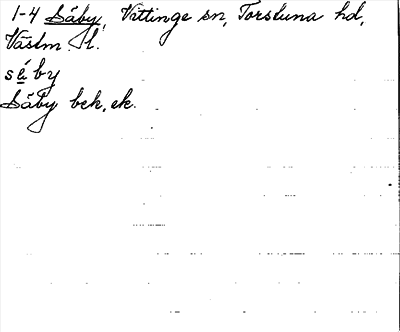 1-4 Såby, Vittinge sn, Torstuna hd,
Västm. l.
såby
Såby bek. ek.